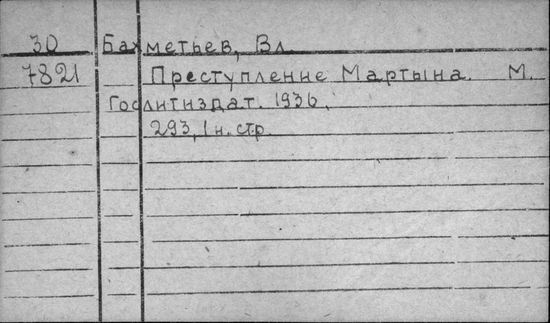 30 Бахметьев, Вл.
7821 Преступление Мартына. М.
Гослитиздат. 1936.
293, 1 н. стр.